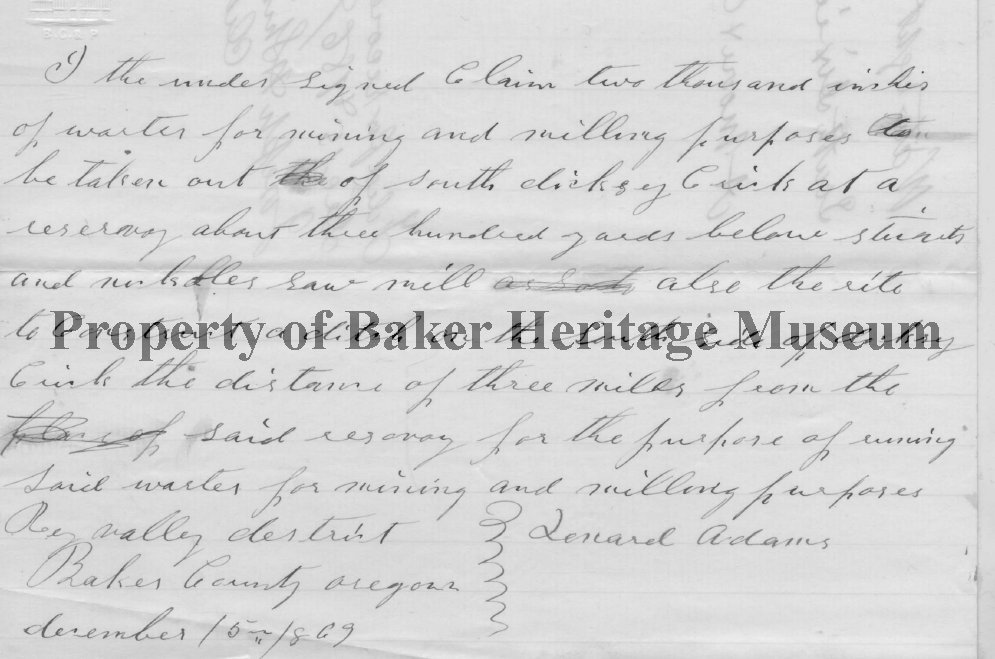 B. C. & P
I the under signed Claim two thousand inches
of warter for mining and milling purposes to
be taken out the of south dicksey Crick at a
reservoy about three hundred yards below
and saw mill also the rite
to Construct a ditch on the south side of dicksey
Crick the distance of three miles from the
place of said reservoy for the purpose of runing
said warter for mining and milling purposes
Rey valley destrict Lenard Adams
Baker County oregon
december 15th 1869
Property of Baker Heritage Museum